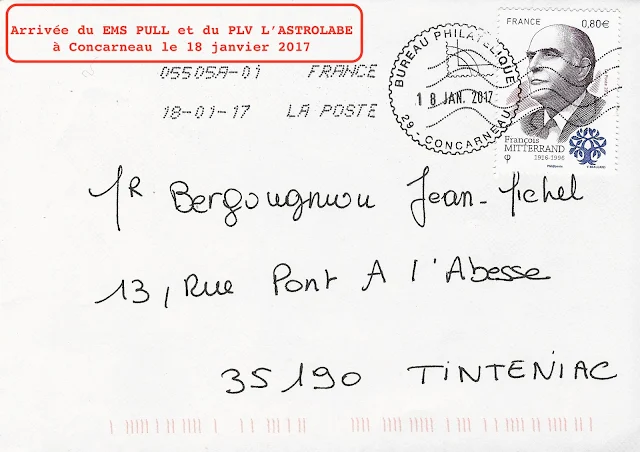 Arrivée du EMS PULL et du PLV L'ASTROLABE
à Concarneau le 18 janvier 2017
05505A-01 FRANCE
18-01-17 LA POSTE
BUREAU PHILATELIQUE
18 JAN. 2017
29 - CONCARNEAU
FRANCE 0,80€
François
MITTERRAND
1916-1996
Mr Bergougniou Jean-Michel
13, Rue Pont A l'Abesse
35190 TINTENIAC